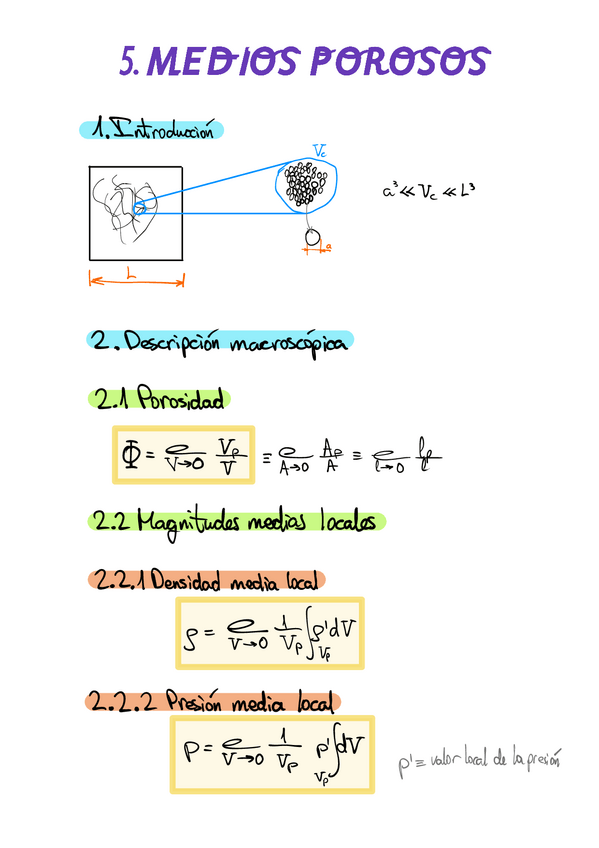 5. MEDIOS POROSOS
1. Introducción
Vc
a³ ≪ Vc ≪ L³
a
L
2. Descripción macroscópica
2.1 Porosidad
Φ = ℓ V→0 Vp/V ≡ ℓ A→0 Ap/A ≡ ℓ l→0 lp/l
2.2 Magnitudes medias locales
2.2.1 Densidad media local
ρ = ℓ V→0 1/Vp ∫Vp ρ' dV
2.2.2 Presión media local
p = ℓ V→0 1/Vp p' ∫Vp dV
p' ≡ valor local de la presión